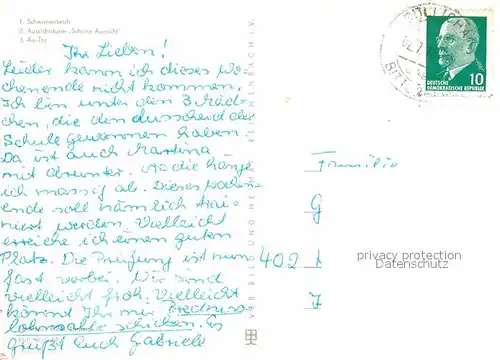 1. Schwanenteich
2. Aussichtsturm „Schöne Aussicht“
3. Am Tor
Ihr Lieben!
Leider kann ich dieses Wo-
chenende nicht kommen.
Ich bin unter den 3 Mäd-
chen, die den Ausscheid der
Schule gewonnen haben.
Da ist auch Martina
mit drunter. An die hänge
ich massig ab. Dieses Wochen-
ende soll nämlich trai-
niert werden. Vielleicht
erreiche ich einen guten
Platz. Die Prüfung ist nun
fast vorbei. Wir sind
vielleicht froh. Vielleicht
könnt Ihr mir
schicken. Es
grüßt Euch Gabriele
VEB BILD UND HEIMAT REICHENBACH I. V.
Familie
G
402 1
Z
privacy protection
Datenschutz
10
DEUTSCHE
DEMOKRATISCHE REPUBLIK